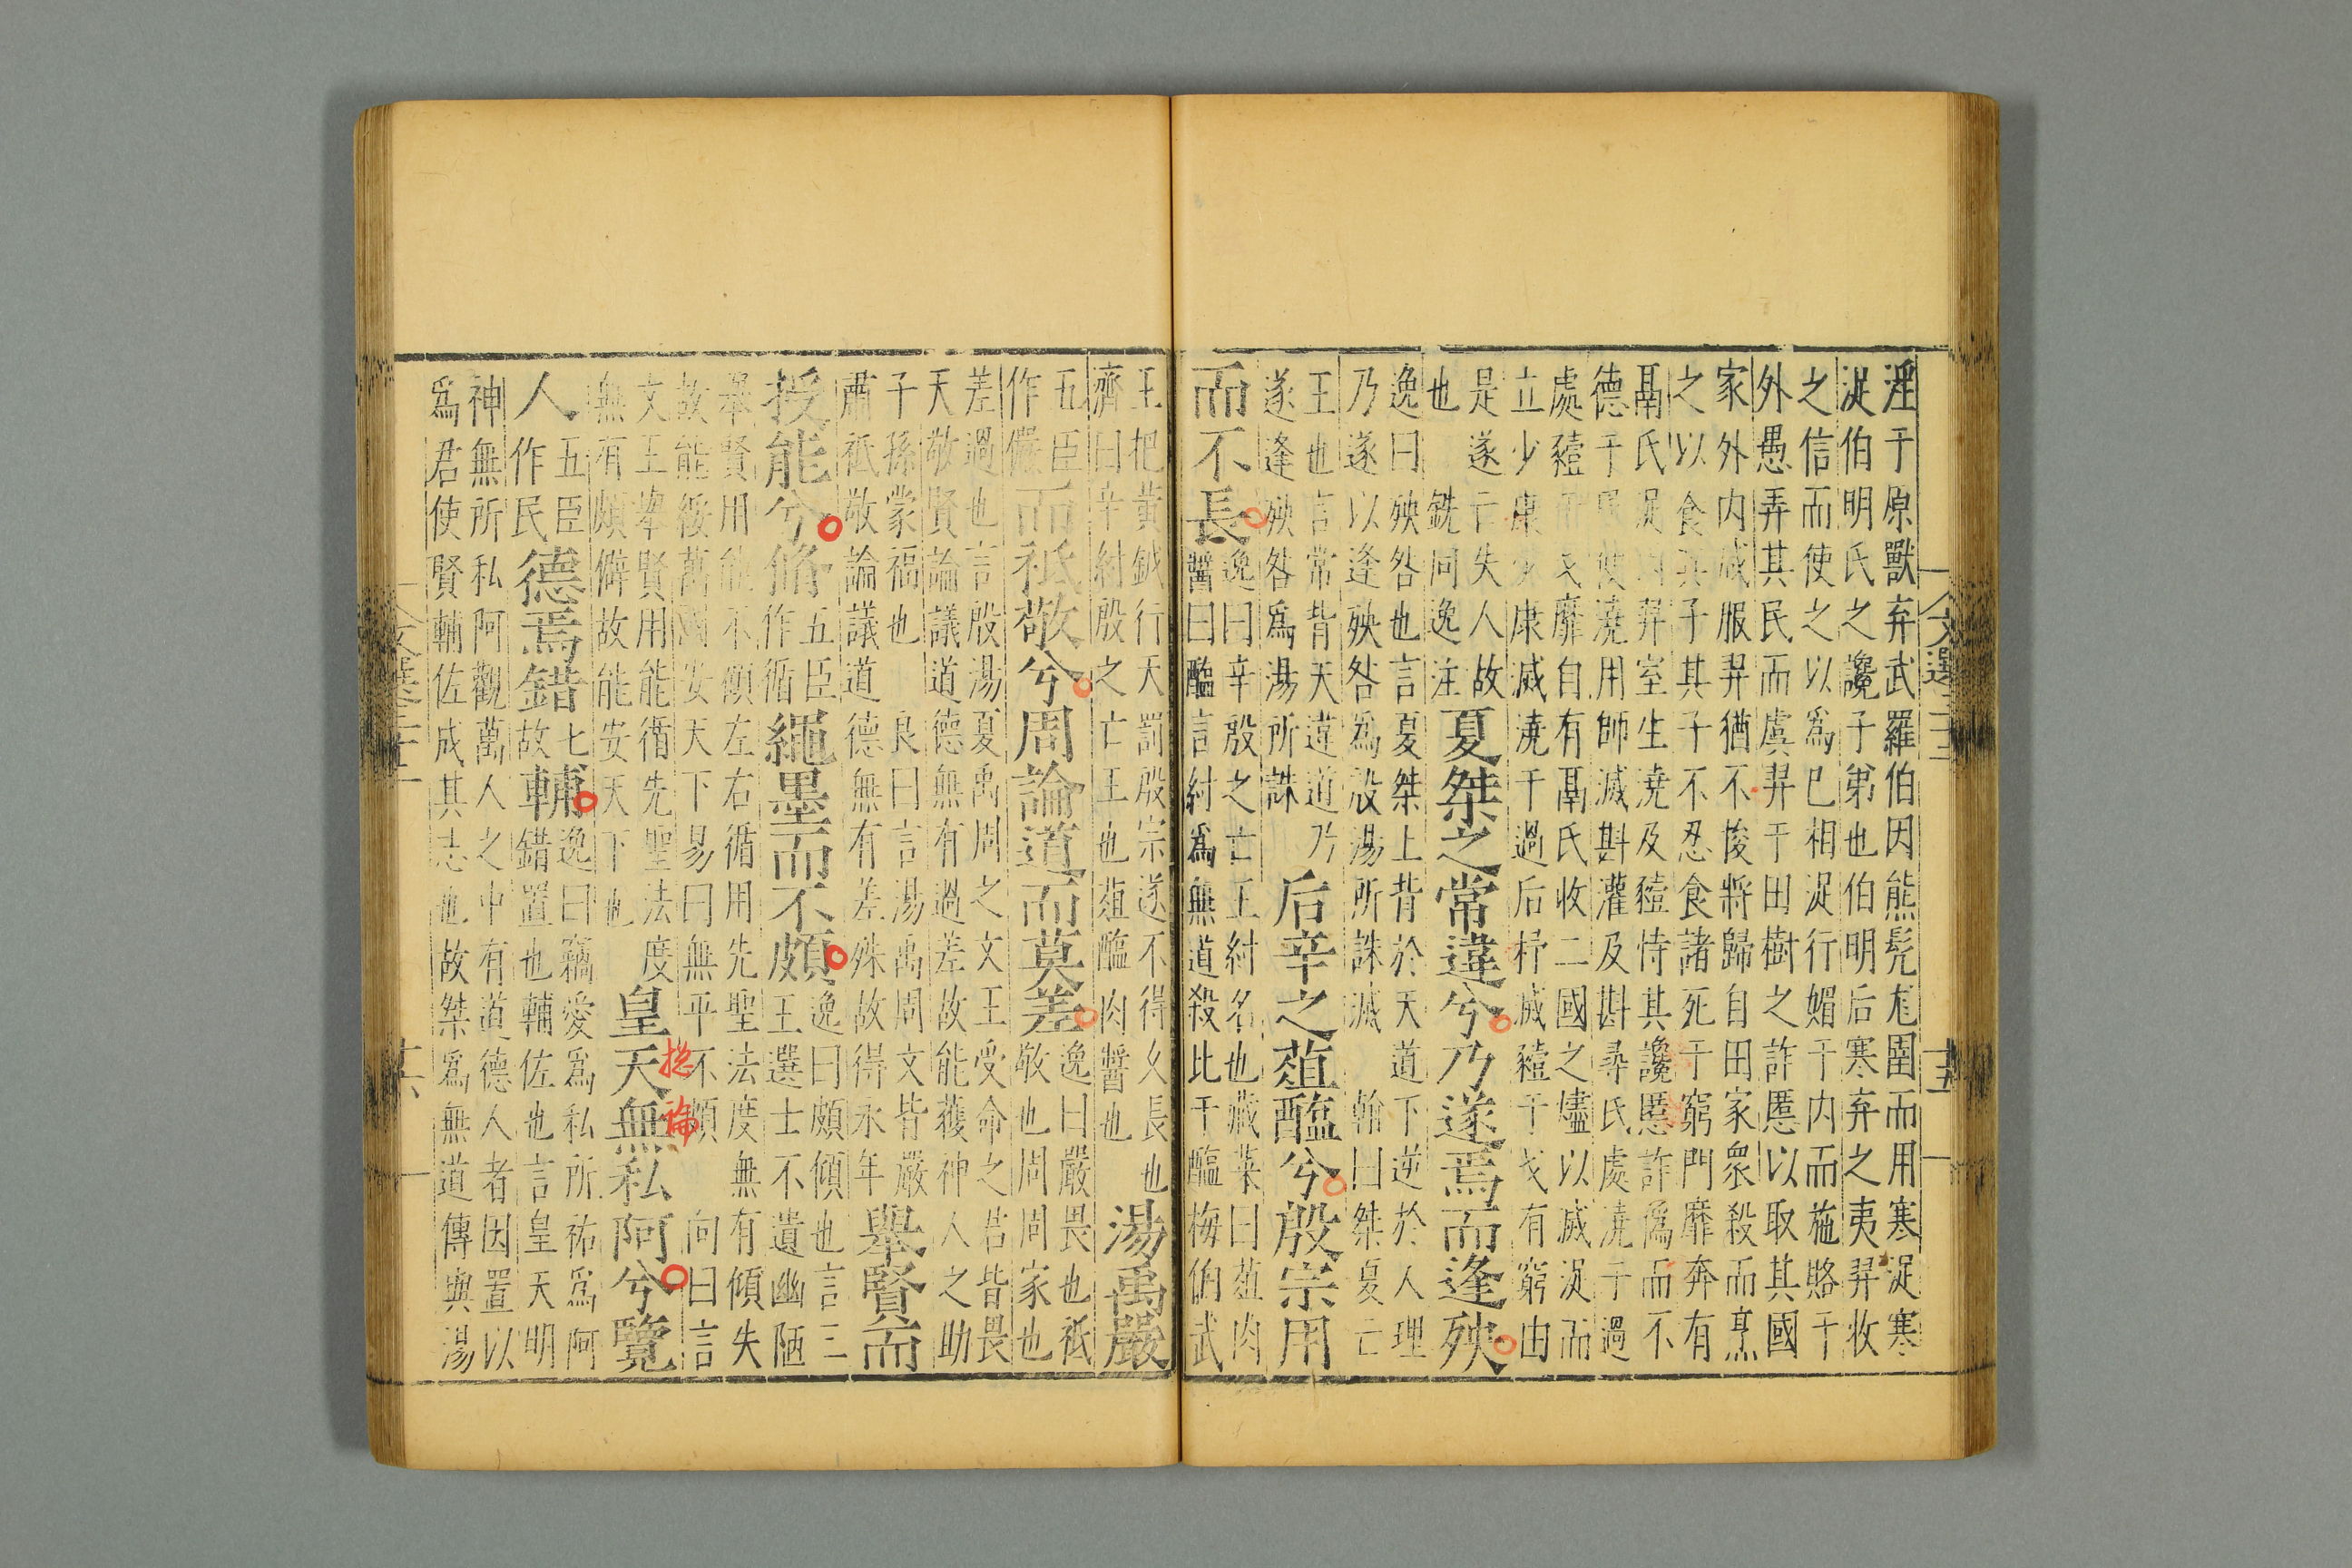 淫于原獸弃武羅伯因熊髠尨圉而用寒浞寒
浞伯明氏之讒子弟也伯明后寒弃之夷羿收
之信而使之以爲已相浞行媚于内而施賂于
外愚弄其民而虞羿于田樹之詐慝以取其國
家外内咸服羿猶不悛將歸自田家衆殺而烹
之以食其子其子不忍食諸死于窮門靡奔有
鬲氏浞因羿室生澆及豷恃其讒慝詐爲而不
德于民使澆用師滅斟灌及斟尋氏處澆于過
處豷于戈靡自有鬲氏收二國之燼以滅浞而
立少康少康滅澆于過后杼滅豷于戈有窮由
是遂亡失人故
也 銑同逸注
夏桀之常違兮乃遂焉而逢殃
逸曰殃咎也言夏桀上背於天道下逆於人理
乃遂以逢殃咎爲殷湯所誅滅 翰曰桀夏亡
王也言常背天違道乃
遂逢殃咎爲湯所誅
后辛之菹醢兮殷宗用
而不長
逸曰辛殷之亡王紂名也藏菜曰菹肉
醬曰醢言紂爲無道殺比干醢梅伯武
文選三十二
十五
王把黄鉞行天罰殷宗遂不得久長也
濟曰辛紂殷之亡王也菹醢肉醬也
湯禹嚴
五臣
作儼
而祗敬兮周論道而莫差
逸曰嚴畏也祗
敬也周周家也
差過也言殷湯夏禹周之文王受命之君皆畏
天敬賢論議道德無有過差故能獲神人之助
子孫蒙福也 良曰言湯禹周文皆嚴
肅祗敬論議道德無有差殊故得永年
舉賢而
授能兮脩
五臣
作循
繩墨而不頗
逸曰頗傾也言三
王選士不遺幽陋
舉賢用能不顧左右循用先聖法度無有傾失
故能綏萬國安天下易曰無平不頗 向曰言
文王舉賢用能循先聖法度
無有頗僻故能安天下也
皇天無私阿兮覽
揔論
人
五臣
作民
德焉錯
七
故
輔
逸曰竊愛爲私所祐爲阿
錯置也輔佐也言皇天明
神無所私阿觀萬人之中有道德人者因置以
爲君使賢輔佐成其志也故桀爲無道傳與湯
文選三十二
十六